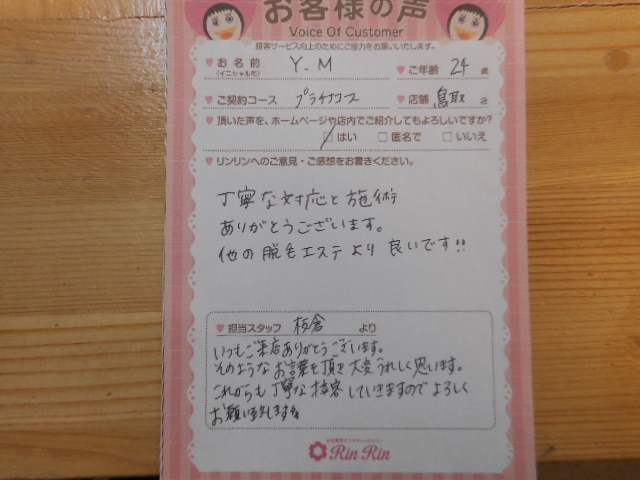 お客様の声
Voice Of Customer
接客サービス向上のためにご協力をお願いいたします。
お名前 Y.M ご年齢 24 歳
(イニシャル可)
ご契約コース プラチナコース 店舗 鳥取 店
頂いた声を、ホームページや店内でご紹介してもよろしいですか?
はい 匿名で いいえ
リンリンへのご意見・ご感想をお書きください。
丁寧な対応と施術
ありがとうございます。
他の脱毛エステより良いです!!
担当スタッフ 板倉 より
いつもご来店ありがとうございます。
そのようなお言葉を頂き大変うれしく思います。
これからも丁寧な接客していきますのでよろしく
お願い致します
Rin Rin